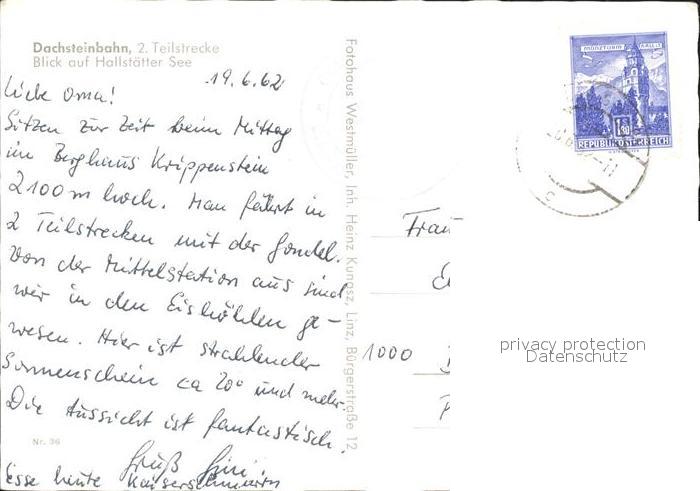 Dachsteinbahn, 2. Teilstrecke
Blick auf Hallstätter See
19.6.62
Liebe Oma!
Sitzen zur Zeit beim Mittag
im Berghaus Krippenstein
2100 m hoch. Man fährt in
2 Teilstrecken mit der Gondel.
Von der Mittelstation aus sind
wir in den Eishöhlen ge-
wesen. Hier ist strahlender
Sonnenschein ca 20° und mehr.
Die Aussicht ist fantastisch.
Gruß
Esse heute Kaiserschmarrn
Nr. 36
Fotohaus Westmüller, Inh. Heinz Kungsz, Linz, Bürgerstraße 12
MÜNZTURM HALL I.T.
1.80
REPUBLIK ÖSTERREICH
Frau
1000
privacy protection
Datenschutz